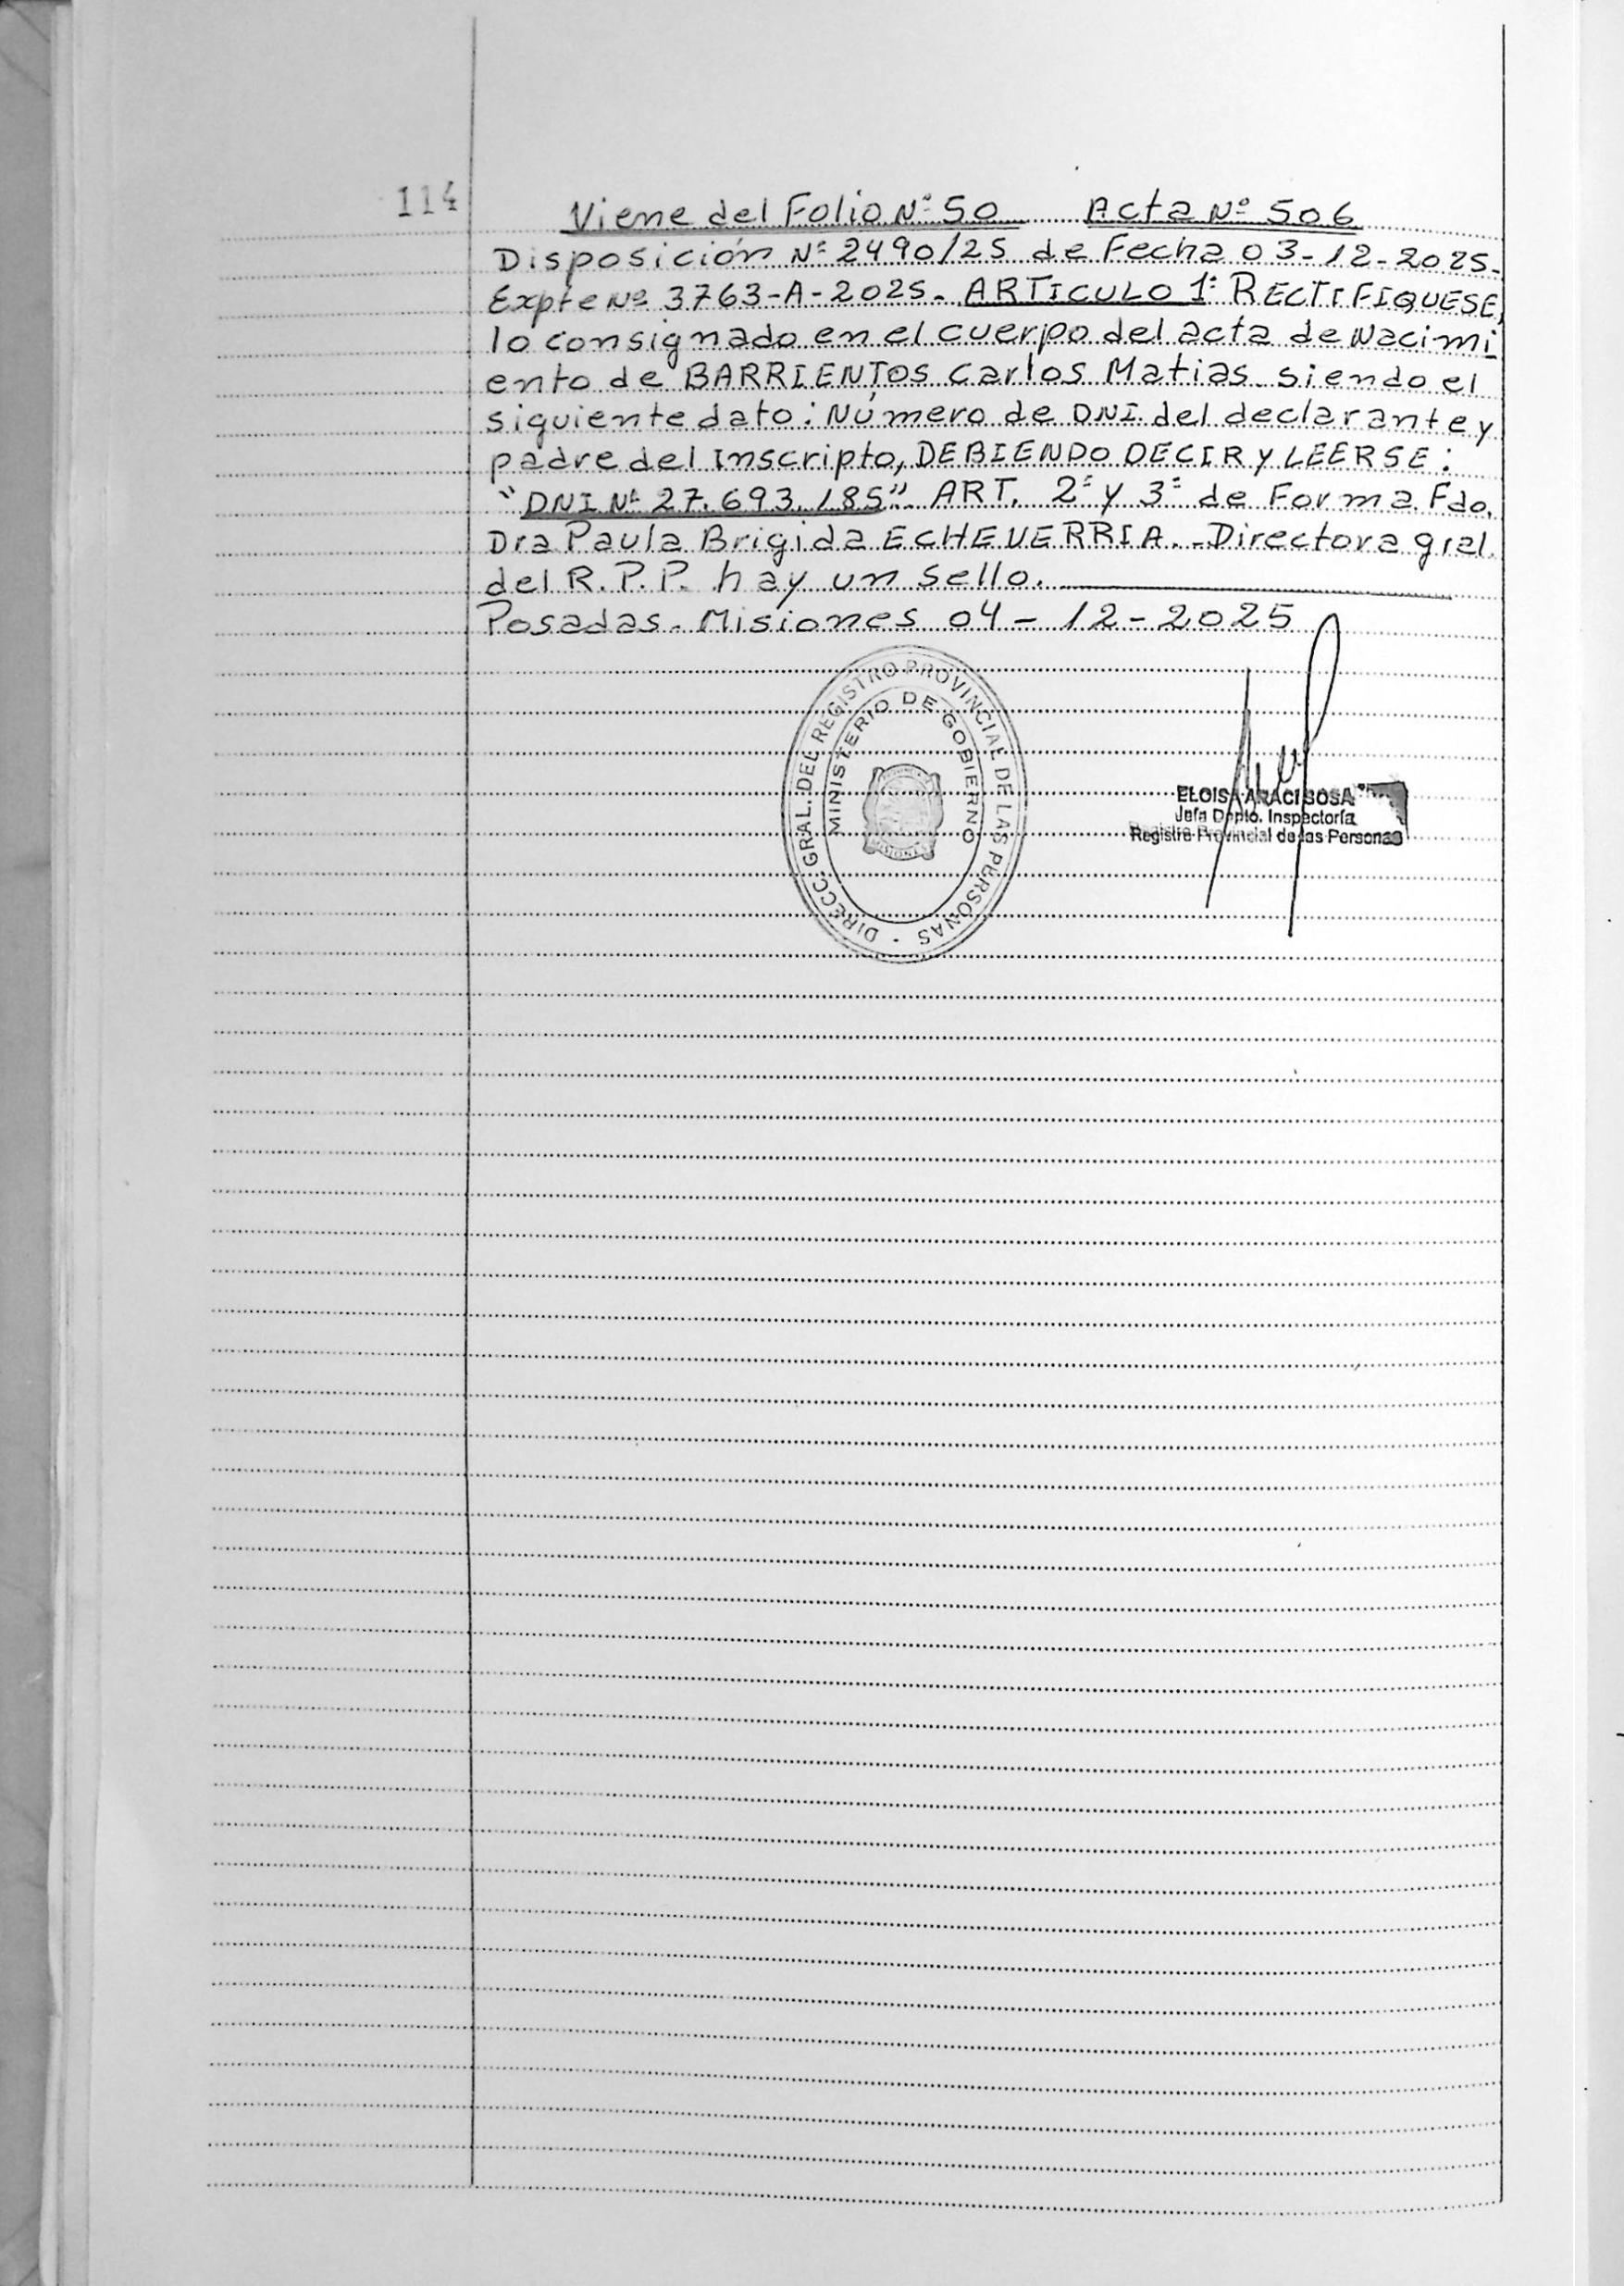 114
Viene del Folio Nº 50 Acta Nº 506
Disposición Nº 2490/25 de Fecha 03-12-2025-
Expte Nº 3763-A-2025- ARTICULO 1º RECTIFIQUESE,
lo consignado en el cuerpo del acta de Nacimi
ento de BARRIENTOS Carlos Matias. siendo el
siguiente dato: Número de DNI del declarante y
padre del inscripto, DEBIENDO DECIR y LEERSE:
"DNI Nº 27.693.185". ART. 2º y 3º de Forma Fdo.
Dra Paula Brigida ECHEVERRIA.-Directora gral.
del R.P.P. hay un sello.
Posadas-Misiones 04-12-2025
DIRECC. GRAL. DEL REGISTRO PROVINCIAL DE LAS PERSONAS -
MINISTERIO DE GOBIERNO
MISIONES
ELOISA ARACI SOSA
Jefa Dpto. Inspectoría
Registro Provincial de las Personas